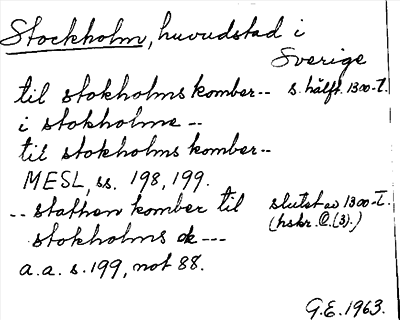 Stockholm, huvudstad i
Sverige
til stokholms komber-- s. hälft. 1300-t.
i stokholme --
til stokholms komber--
MESL, ss. 198, 199.
-- stathen komber til slutet av 1300-t.
stokholms ok --- (hskr. C.(3).)
a.a. s. 199, not 88.
G.E. 1963.